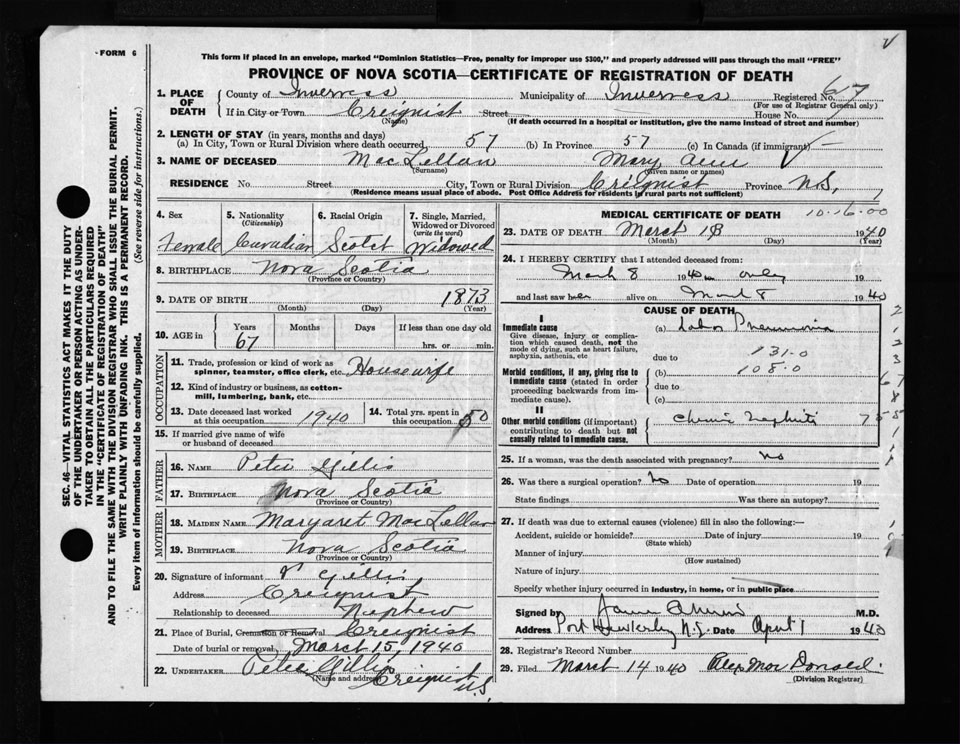 FORM 6
V
This form if placed in an envelope, marked "Dominion Statistics—Free, penalty for improper use $300," and properly addressed will pass through the mail "FREE"
PROVINCE OF NOVA SCOTIA—CERTIFICATE OF REGISTRATION OF DEATH
SEC. 46—VITAL STATISTICS ACT MAKES IT THE DUTY
OF THE UNDERTAKER OR PERSON ACTING AS UNDER-
TAKER TO OBTAIN ALL THE PARTICULARS REQUIRED
IN THE "CERTIFICATE OF REGISTRATION OF DEATH"
AND TO FILE THE SAME WITH THE DIVISION REGISTRAR WHO SHALL ISSUE THE BURIAL PERMIT.
WRITE PLAINLY WITH UNFADING INK. THIS IS A PERMANENT RECORD.
Every item of information should be carefully supplied. (See reverse side for instructions.)
1. PLACE OF DEATH County of Inverness Municipality of Inverness Registered No. 67
(For use of Registrar General only)
If in City or Town Creignist Street House No.
(Name) (If death occurred in a hospital or institution, give the name instead of street and number)
2. LENGTH OF STAY (in years, months and days)
(a) In City, Town or Rural Division where death occurred 57 (b) In Province 57 (c) In Canada (if immigrant) —
3. NAME OF DECEASED MacLellan Mary Ann V
(Surname) (Given name or names)
RESIDENCE No. Street City, Town or Rural Division Creignist Province N.S.
(Residence means usual place of abode. Post Office Address for residents in rural parts not sufficient)
4. Sex 5. Nationality (Citizenship) 6. Racial Origin 7. Single, Married, Widowed or Divorced (write the word)
Female Canadian Scotch Widowed
8. BIRTHPLACE Nova Scotia
(Province or Country)
9. DATE OF BIRTH 1873
(Month) (Day) (Year)
10. AGE in Years Months Days If less than one day old
67 hrs. or min.
OCCUPATION
11. Trade, profession or kind of work as spinner, teamster, office clerk, etc. Housewife
12. Kind of industry or business, as cotton-mill, lumbering, bank, etc.
13. Date deceased last worked at this occupation 1940 14. Total yrs. spent in this occupation 50
15. If married give name of wife or husband of deceased
FATHER
16. NAME Peter Gillis
17. BIRTHPLACE Nova Scotia
(Province or Country)
MOTHER
18. MAIDEN NAME Margaret MacLellan
19. BIRTHPLACE Nova Scotia
(Province or Country)
20. Signature of informant Gillis
Address Creignist
Relationship to deceased Nephew
21. Place of Burial, Cremation or Removal Creignist
Date of burial or removal March 15, 1940
22. UNDERTAKER Peter Gillis
(Name and address) Creignist
N.S
MEDICAL CERTIFICATE OF DEATH 10-16-00
23. DATE OF DEATH March 13 1940
(Month) (Day) (Year)
24. I HEREBY CERTIFY that I attended deceased from:
March 8 1940 only
and last saw her alive on March 8 1940
CAUSE OF DEATH
I
Immediate cause (a) Lobar Pneumonia
Give disease, injury or complication which caused death, not the mode of dying, such as heart failure, asphyxia, asthenia, etc
due to 131.0
Morbid conditions, if any, giving rise to immediate cause (stated in order proceeding backwards from immediate cause).
(b) 108.0
due to
(c)
II
Other morbid conditions (if important) contributing to death but not causally related to immediate cause.
Chronic Nephritis
25. If a woman, was the death associated with pregnancy? No
26. Was there a surgical operation? No Date of operation 19
State findings Was there an autopsy?
27. If death was due to external causes (violence) fill in also the following:—
Accident, suicide or homicide? Date of injury 19
(State which)
Manner of injury
(How sustained)
Nature of injury
Specify whether injury occurred in industry, in home, or in public place
Signed by M.D.
Address Port Hawkesbury N.S. Date April 1 1940
28. Registrar's Record Number
29. Filed March 14 1940 Alex MacDonald
(Division Registrar)